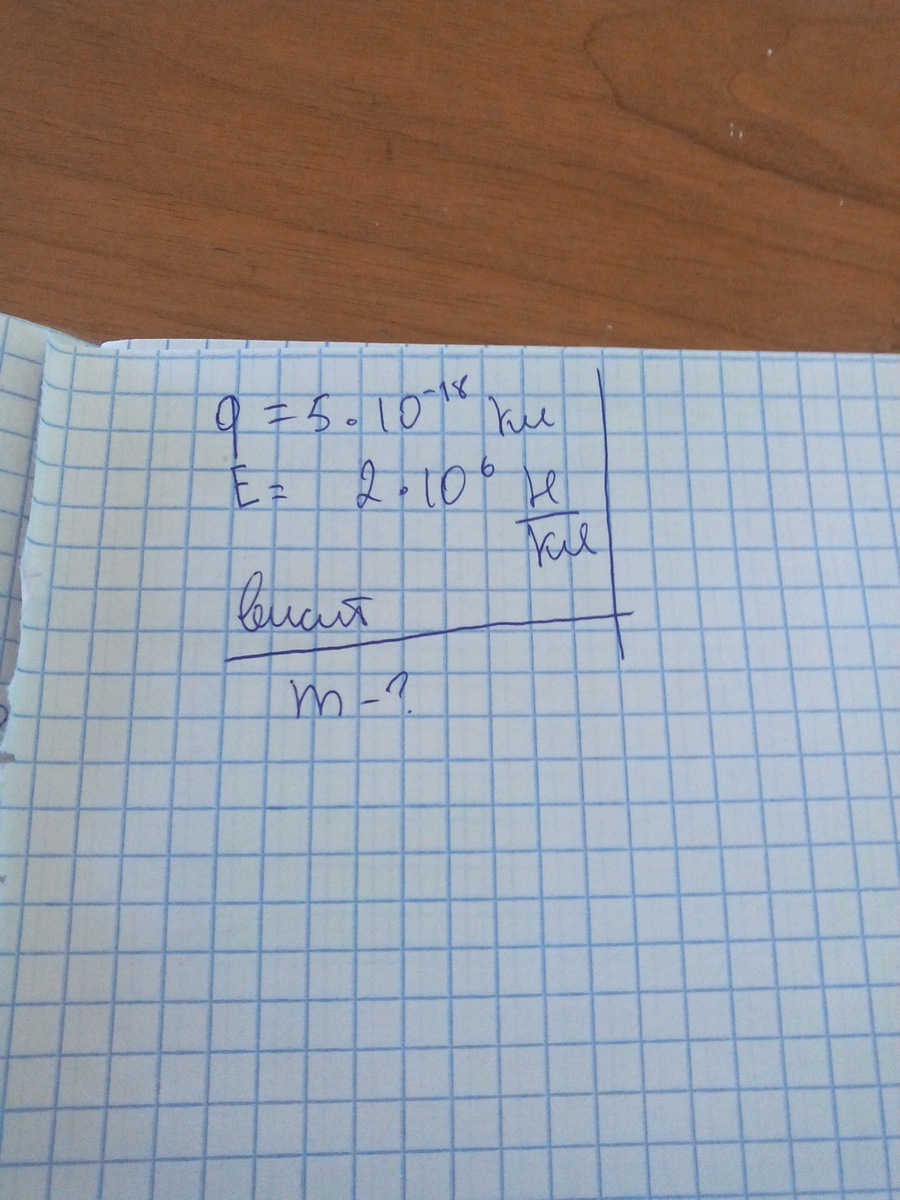 q = 5 · 10⁻¹⁸ Кл
E = 2 · 10⁶ Н/Кл
висит
m - ?